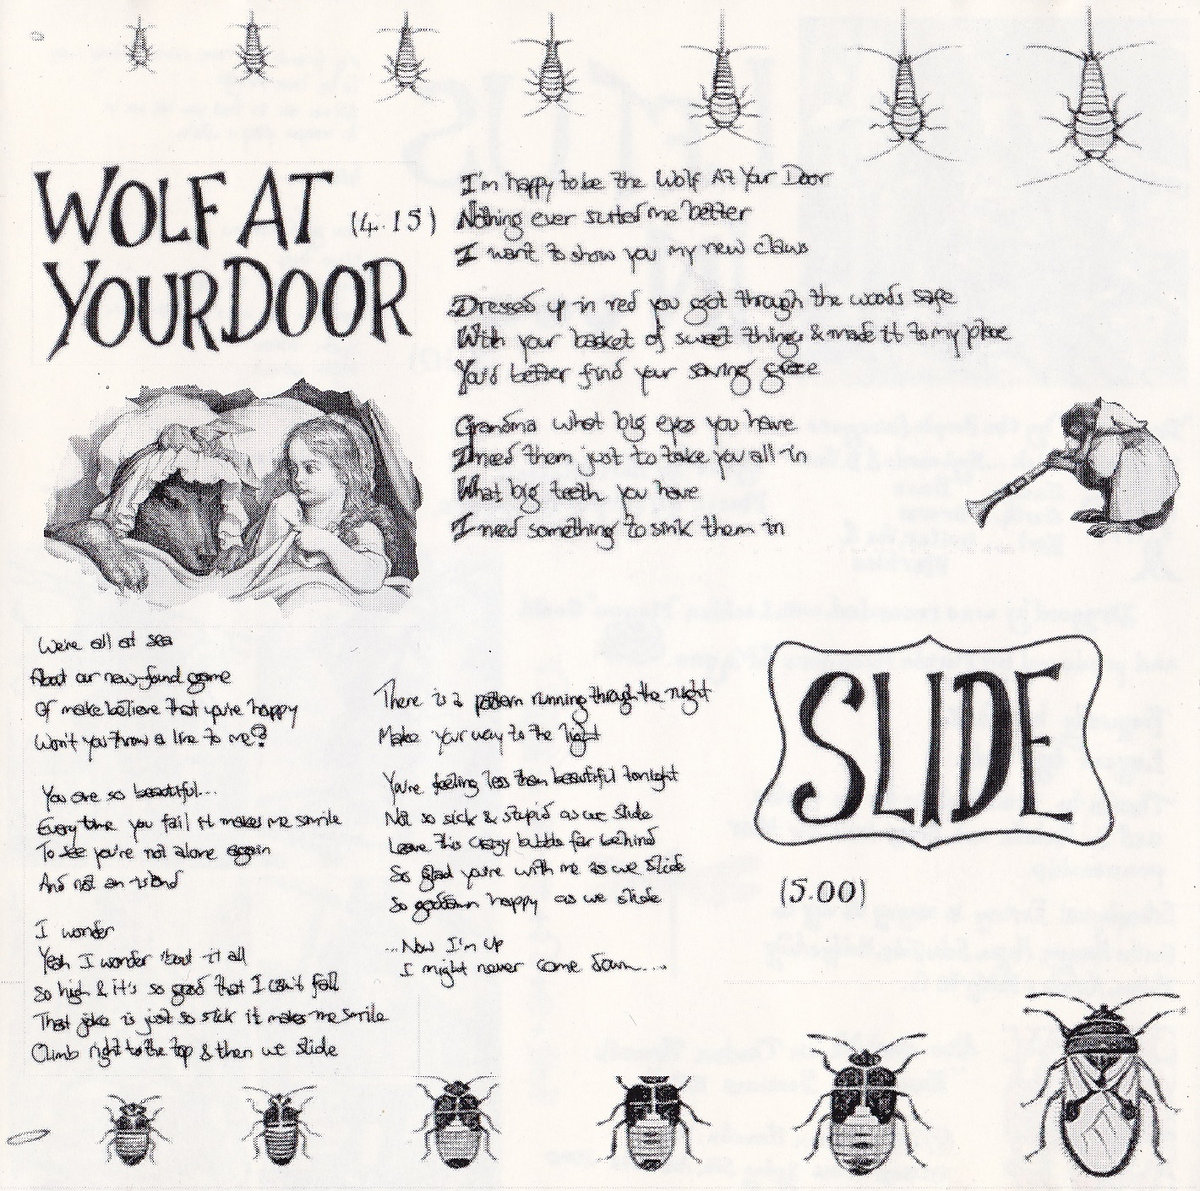 WOLF AT
YOUR DOOR
(4.15)
I'm happy to be the Wolf At Your Door
Nothing ever suited me better
I want to show you my new claws
Dressed up in red you got through the woods safe
With your basket of sweet things & made it to my place
You'd better find your saving grace
Grandma what big eyes you have
I need them just to take you all in
What big teeth you have
I need something to sink them in
SLIDE
(5.00)
We're all at sea
About our new-found game
Of make believe that you're happy
Won't you throw a line to me?
You are so beautiful...
Every time you fall it makes me smile
To see you're not alone again
And not an island
I wonder
Yeah I wonder 'bout it all
So high & it's so good that I can't fall
That joke is just so sick it makes me smile
Climb right to the top & then we slide
There is a pattern running through the night
Make your way to the light
You're feeling less than beautiful tonight
Not so sick & stupid as we slide
Leave this crazy bubble far behind
So glad you're with me as we slide
So goddamn happy as we slide
...Now I'm up
I might never come down....